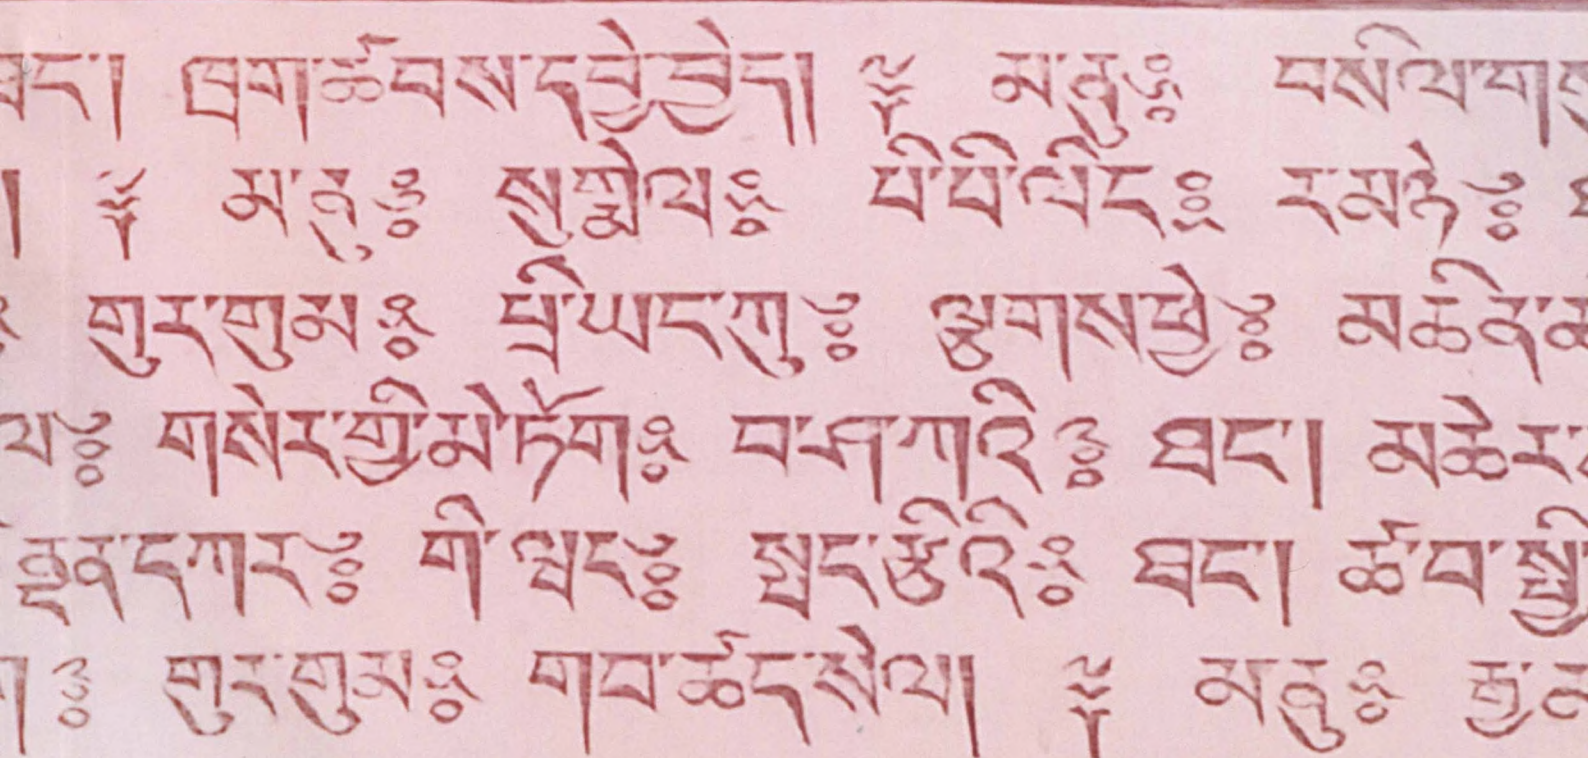 ཐང་། ཁྲག་ཚབས་དབྱེ་བྱེད། ༈ མ་ནུ༔ བསིལ་
། ༈ མ་ནུ༔ སུཀྨེལ༔ པི་པི་ལིང༔ ར་མཉེ༔
གུར་གུམ༔ པྲི་ཡང་ཀུ༔ ལྕགས་ཕྱེ༔ མཆིན་
ལ༔ གསེར་གྱི་མེ་ཏོག༔ བ་ཤ་ཀའི༔ ཐང་། མཆེར་
དཀར༔ གི་ཝང༔ སྤང་རྩིའི༔ ཐང་། ཚ་བ་
ག༔ གུར་གུམ༔ གབ་ཚད་སེལ། ༈ མ་ནུ༔ རྒྱ་